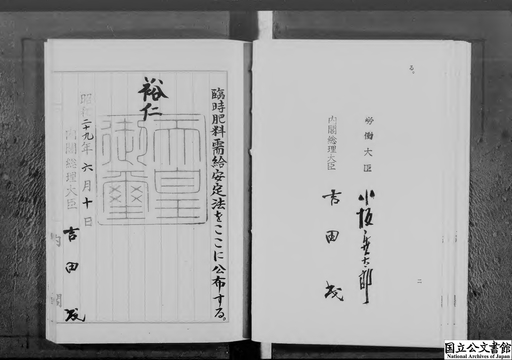 労働大臣
小坂善太郎
内閣総理大臣
吉田茂
二
臨時肥料需給安定法をここに公布する。
裕仁
天皇御璽
昭和二十九年六月十日
内閣総理大臣
吉田茂
内閣
国立公文書館
National Archives of Japan